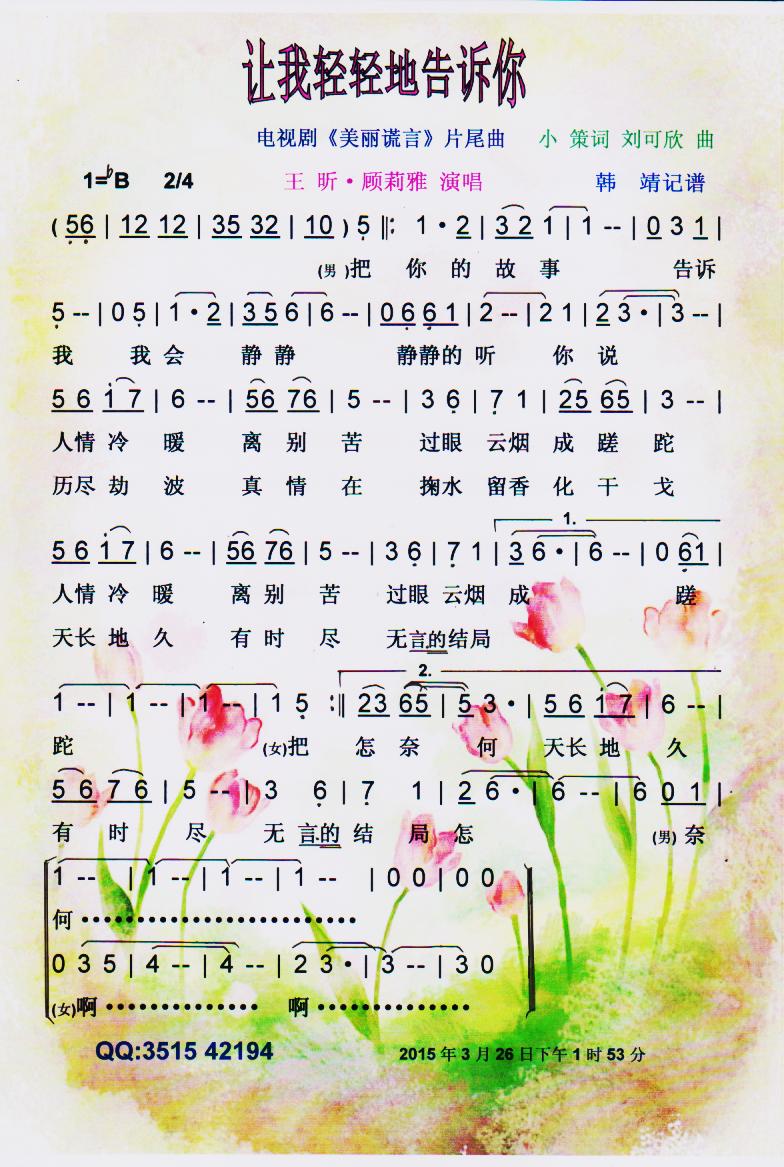 让我轻轻地告诉你
电视剧《美丽谎言》片尾曲 小 策词 刘可欣 曲
1=♭B 2/4 王 昕·顾莉雅 演唱 韩 靖记谱
( 56 | 12 12 | 35 32 | 10 ) 5 ‖: 1 · 2 | 32 1 | 1 -- | 0 3 1 |
(男)把 你 的 故 事 告诉
5 -- | 0 5 | 1 · 2 | 3 5 6 | 6 -- | 0 6 6 1 | 2 -- | 2 1 | 2 3 · | 3 -- |
我 我 会 静 静 静静的 听 你 说
5 6 1 7 | 6 -- | 56 76 | 5 -- | 3 6 | 7 1 | 25 65 | 3 -- |
人情 冷 暖 离 别 苦 过眼 云烟 成 蹉 跎
历尽 劫 波 真 情 在 掬水 留香 化 干 戈
1.
5 6 1 7 | 6 -- | 56 76 | 5 -- | 3 6 | 7 1 | 3 6 · | 6 -- | 0 61 |
人情 冷 暖 离 别 苦 过眼 云烟 成 蹉
天长 地 久 有 时 尽 无言的结局
2.
1 -- | 1 -- | 1 -- | 1 5 :‖ 23 65 | 5 3 · | 5 6 1 7 | 6 -- |
跎 (女)把 怎 奈 何 天长 地 久
5 6 7 6 | 5 -- | 3 6 | 7 1 | 2 6 · | 6 -- | 6 0 1 |
有 时 尽 无 言的 结 局 怎 (男) 奈
1 -- | 1 -- | 1 -- | 1 -- | 0 0 | 0 0
何 ••••••••••••••••••••••
0 3 5 | 4 -- | 4 -- | 2 3 · | 3 -- | 3 0
(女)啊 •••••••••••• 啊 ••••••••••••
QQ:3515 42194 2015 年 3 月 26 日下午 1 时 53 分